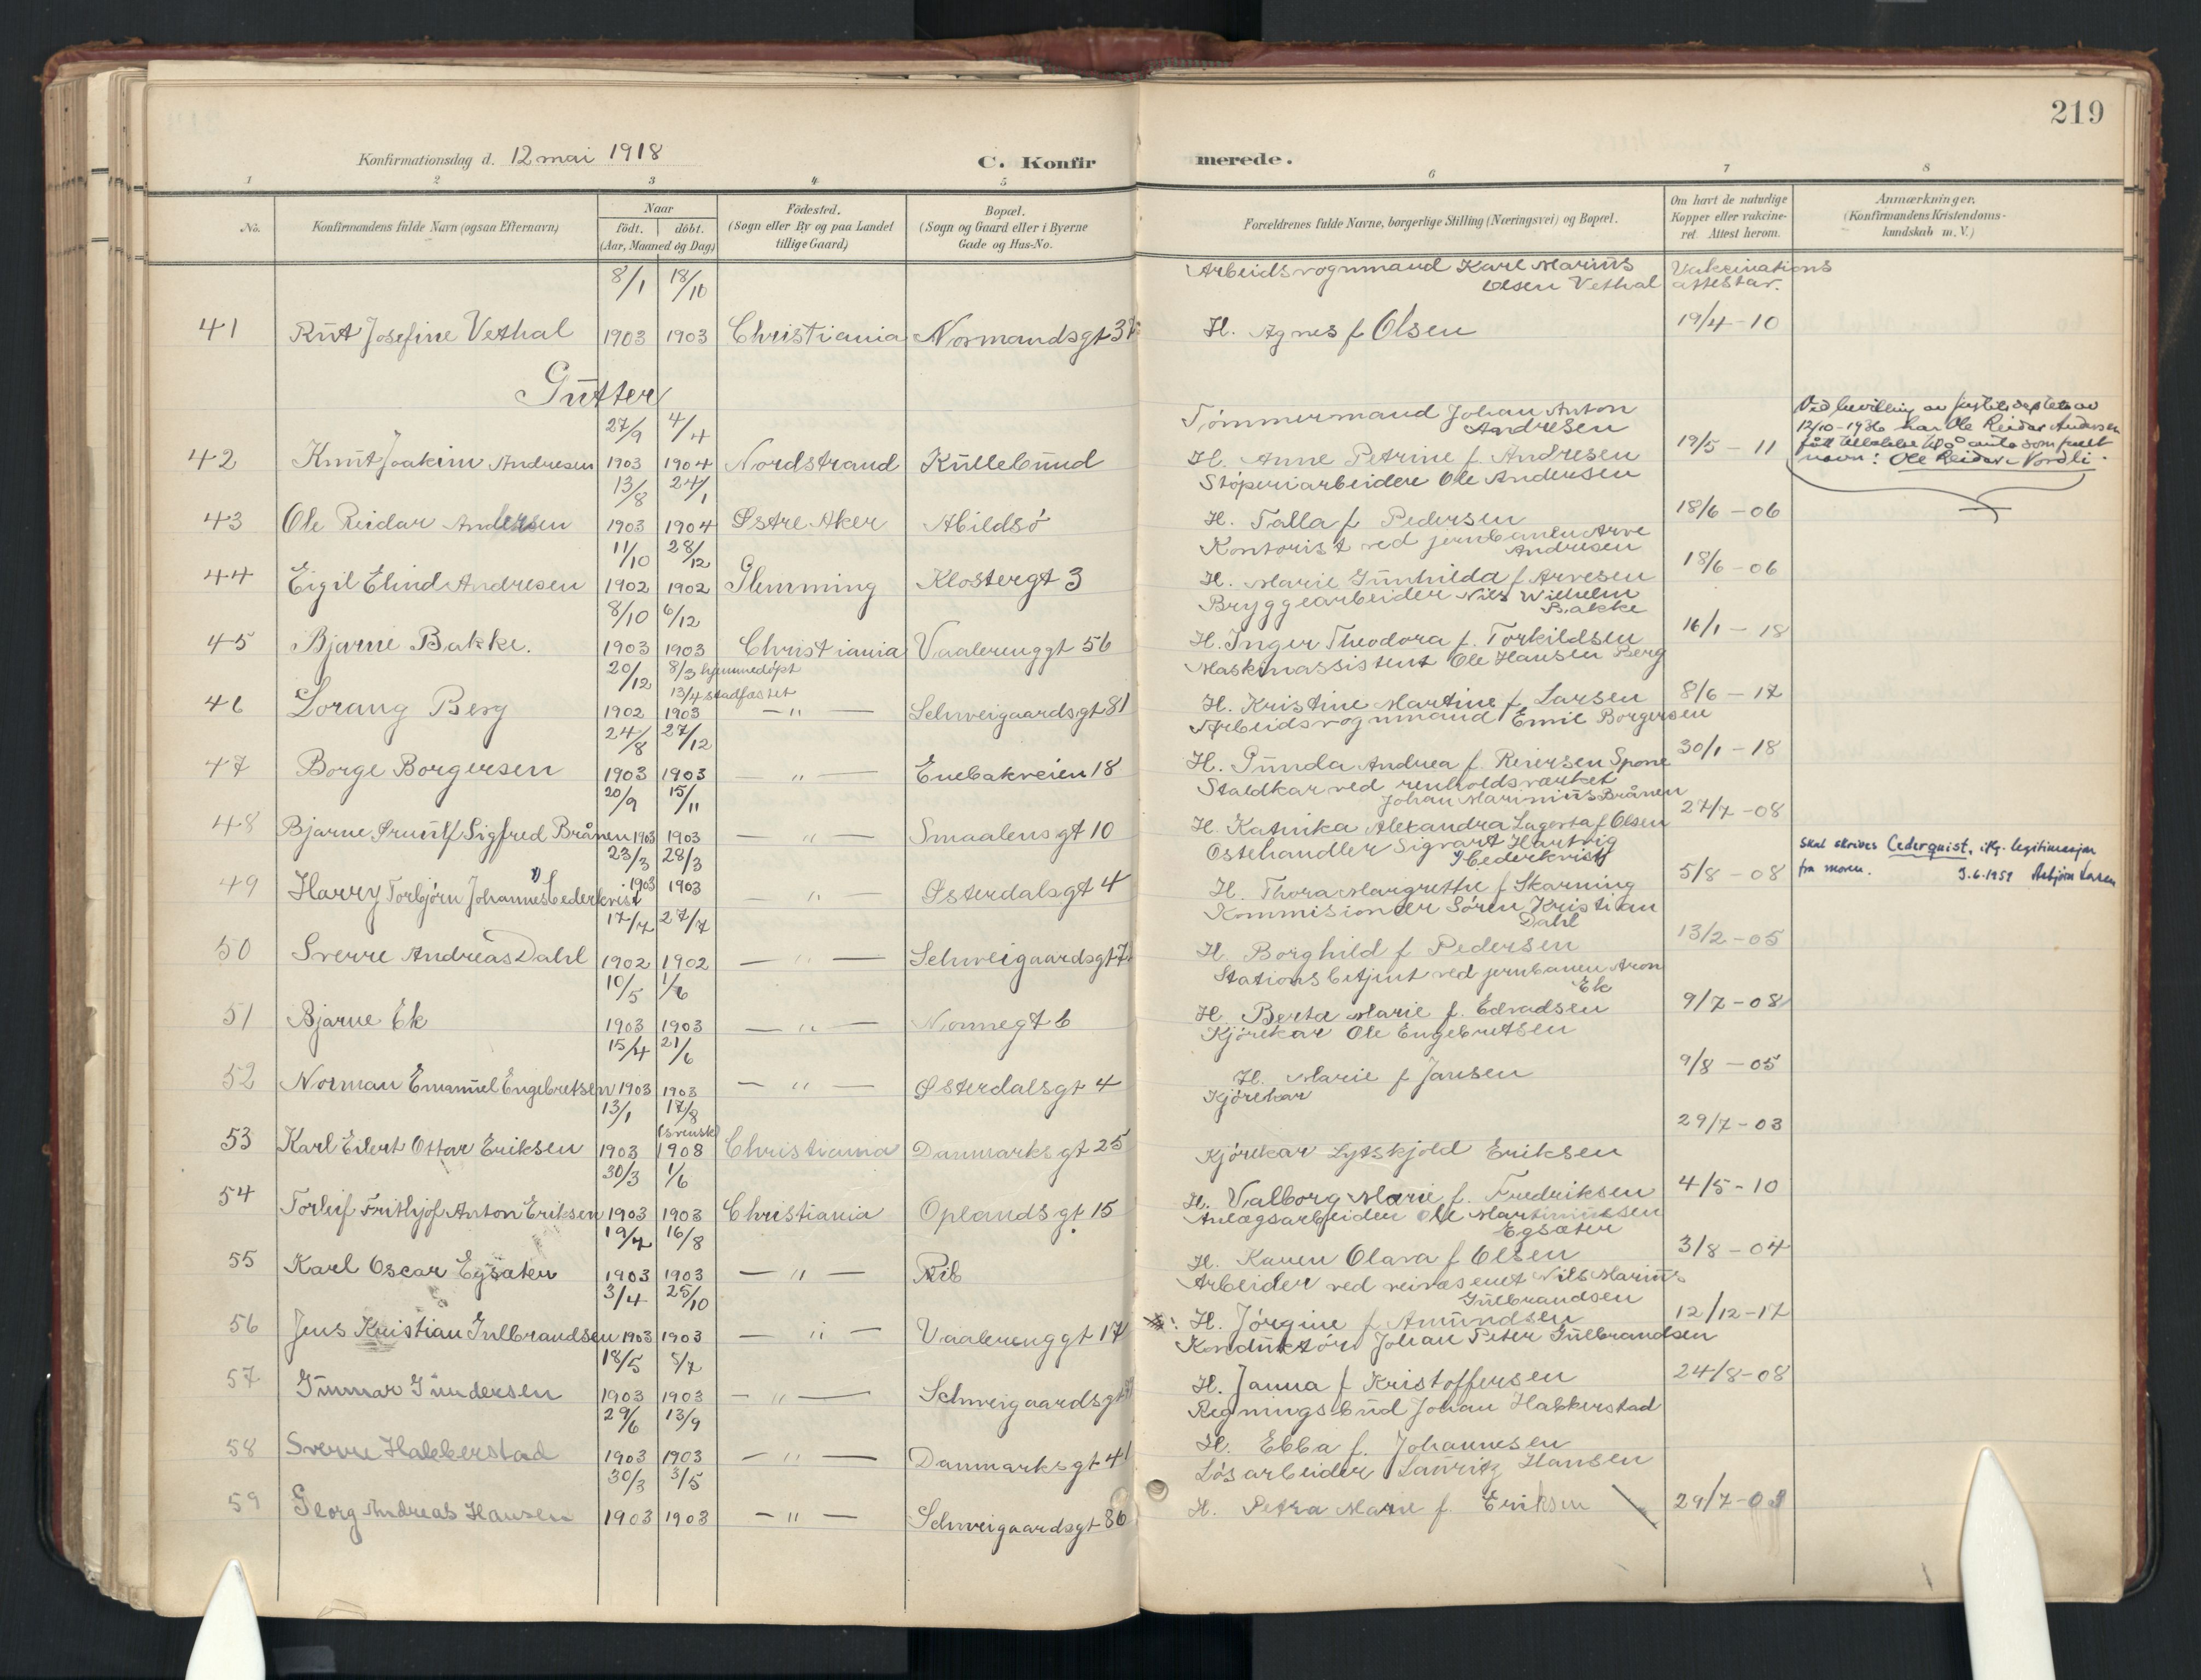 219
Konfirmationsdag d. 12 mai 1918
C. Konfirmerede.
1 2 3 4 5 6 7 8
No.
Konfirmandens fulde Navn (ogsaa Efternavn)
Naar
födt. döbt.
(Aar, Maaned og Dag)
Födested.
(Sogn eller By og paa Landet
tillige Gaard)
Bopæl.
(Sogn og Gaard eller i Byerne
Gade og Hus-No.
Forældrenes fulde Navne, borgerlige Stilling (Næringsvei) og Bopæl.
Om havt de naturlige
Kopper eller vakcine-
ret. Attest herom.
Anmærkninger.
(Konfirmandens Kristendoms-
kundskab m. V.)
8/1 18/10 Arbeidsvognmand Karl Marius Vakcinations
Olsen Vethal attester.
41 Rut Josefine Vethal 1903 1903 Christiania Normandsgt H. Agnes f Olsen 19/4-10
Gutter
27/9 4/4 Tømmermand Johan Anton
Andresen
42 Knut Joakim Andresen 1903 1904 Nordstrand Kullebund H. Anne Petrine f. Andresen 19/5-11
Ved bevilling av justitsdeptet av
12/10-1936 har Ole Reidar Andersen
fått tillatelse til å anta som
navn: Ole Reidar Nordli.
13/8 24/1 Støperiarbeider Ole Andersen
43 Ole Reidar Andersen 1903 1904 Østre Aker Abildsö H. Talla f. Pedersen 18/6-06
11/10 28/12 Kontorist ved jernbanen Arve
Andresen
44 Eigil Elind Andresen 1902 1902 Glemming Klostergt 3 H. Marie Gunhilda f Arvesen 18/6-06
8/10 6/12 Bryggearbeider Nils Wilhelm
Bakke
45 Bjarne Bakke. 1903 1903 Christiania Vaalerenggt 56 H. Inger Theodora f. Torkildsen 16/1-18
20/12 8/3 hjemmedøpt Maskinassistent Ole Hansen Berg
13/4 stadfæstet
46 Lorang Berg 1902 1903 — " — Schweigaardsgt 81 H. Kristine Martine f. Larsen 8/6-17
24/8 27/12 Arbeidsvognmand Emil Borgersen
47 Borge Borgersen 1903 1903 — " — Enebakveien 18 H. Gunda Andrea f. Reiersen Spone 30/1-18
20/9 15/11 Staldkar ved renholdsværket
Johan Marinius Brånen
48 Bjarne Sigfred Brånen 1903 1903 — " — Smaalensgt 10 H. Katinka Alexandra Lagerta f. Olsen 27/7-08
23/3 28/3 Ostehandler Sigvart Hartvig
Cederkvist
49 Harry Torbjörn Johannes Cederkvist 1903 1903 " Østerdalsgt 4 H. Thora Margrethe f Skarning 5/8-08
Skal skrives Cederquist, iflg. legitimasjon
fra moren. 3.6.1959 Asbjørn Larsen
17/7 27/7 Kommisionær Sören Kristian
Dahl
50 Sverre Andreas Dahl 1902 1902 — " — Schweigaardsgt H. Borghild f Pedersen 13/2-05
10/5 1/6 Stationsbetjent ved jernbanen Aron
Ek
51 Bjarne Ek 1903 1903 — " — Nonnegt 6 H. Berta Marie f. Edvadsen 9/7-08
15/4 21/6 Kjörekar Ole Engebretsen
52 Norman Emanuel Engebretsen 1903 1903 — " — Østerdalsgt 4 H. Marie f Jansen 9/8-05
13/1 17/8 Kjörekar
(svensk)
53 Karl Eilert Ottar Eriksen 1903 1908 Christiania Danmarksgt 25 29/7-03
30/3 1/6 Kjörekar Lytskjold Eriksen
54 Torleif Frithjof Anton Eriksen 1903 1903 Christiania Oplandsgt 15 H. Valborg Marie f. Fredriksen 4/5-10
19/7 16/8 Anlægsarbeider Ole Martiniussen
Egsæter
55 Karl Oscar Egsæter 1903 1903 — " — H. Karen Olava f Olsen 3/8-04
3/4 25/10 Arbeider ved veivæsenet Nils Marius
Gulbrandsen
56 Jens Kristian Gulbrandsen 1903 1903 — " — Vaalerenggt 17 H. Jörgine f Amundsen 12/12-17
18/5 5/7 Konduktör Johan Peter Gulbrandsen
57 Gunnar Gundersen 1903 1903 — " — Schweigaardsgt H. Janna f Kristoffersen 24/8-08
29/6 13/9 Regningsbud Johan Hakkerstad
58 Sverre Hakkerstad 1903 1903 — " — Danmarksgt 41 H. Ebba f. Johannesen
30/3 3/5 Lösarbeider Lauritz Hansen
59 Georg Andreas Hansen 1903 1903 — " — Schweigaardsgt 86 H. Petra Marie f Eriksen 29/7-03